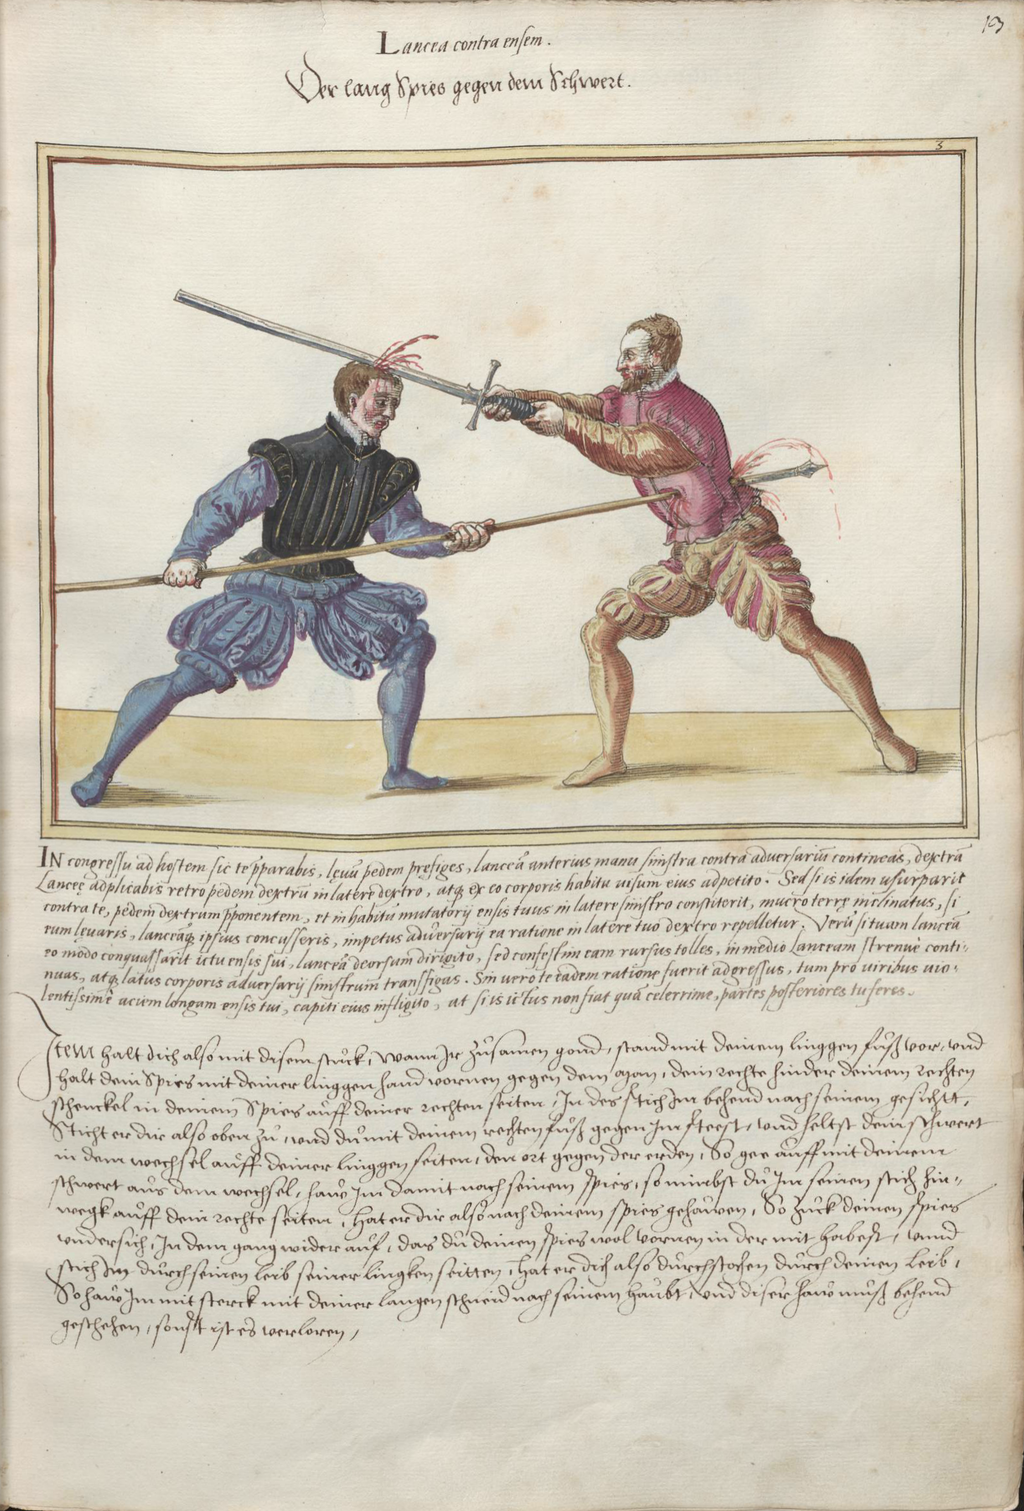 13
Lancea contra ensem.
Der lang Spies gegen dem Schwert.
5
IN congressu ad hostem sic te p̄parabis, lęvū pedem prefiges, lanceā anterius manu sinistra contra adversariū contineas, dextrā
Lanceę adplicabis retro pedem dextrū in latere dextro, atq; ex eo corporis habitu visum eius adpetito. Sed si is idem usurparit
contra te, pedem dextrum p̄ponentem, et in habitu mutatorij ensis tuus in latere sinistro constiterit, mucro terrę inclinatus, si
eum levaris, lanceāq; ipsius concusseris, impetus adversarij ea ratione in latere tuo dextro repelletur. Verū si tuam lanceā
eo modo conquassarit ictu ensis sui, lanceā deorsum dirigito, sed confestim eam rursus tolles, in medio Lanceam strenuè conti-
nuas, atq; latus corporis adversarij sinistrum transfigas. Sin verò te eadem ratione fuerit adgressus, tum pro viribus vio-
lentissimè aciem longam ensis tui, capiti eius infligito, at si is ictus non fiat quā celerrime, partes posteriores tu feres.
Item halt dich also mit disem stuck, wann Ir zusamen gond, stand mit deinem linggen fuß vor, und
halt dein Spies mit deiner linggen hand vornen gegen dem man, dein rechte hinder deinem rechten
schenckel in deinem Spies auff deiner rechten seiten, In des stich Im behend nach seinem gesicht,
Sticht er dir also oben zu, und du mit deinem rechten fuß gegen Im steest, und heltst dein schwert
in dem wechsel auff deiner linggen seiten, den ort gegen der erden, So gee auff mit deinem
schwert aus dem wechsel, haw Im damit nach seinem spies, so nimbst du Im seinen stich hin-
wegk auff dein rechte seiten, hat er dir also nach deinem spies gehawen, So zuck deinen spies
undersich, In dem gang wider auf, das du deinen spies wol vornen in der mit habest, unnd
stich Im durch seinen leib seiner lingken seitten, hat er dich also durchstochen durch deinen leib,
So haw Im mit sterck mit deiner langen schneid nach seinem haubt, und diser haw muß behend
geschehen, sonst ist es verloren,